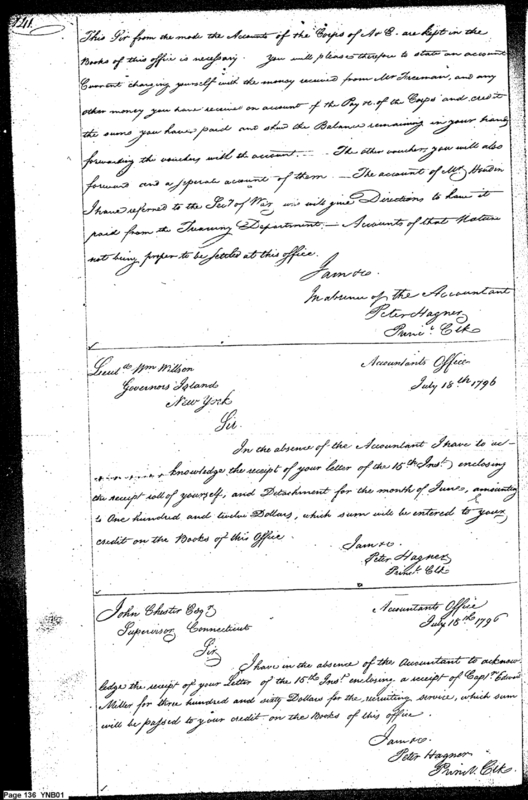 141.
This Sir from the mode the Accounts of the Corps of A & E. are kept in the
Books of this office is necessary. You will please therefore to state an account
Current charging yourself with the money received from Mr Freeman, and any
other money you have receive on account of the Pay &c. of the Corps and credit
the sums you have paid and shew the Balance remaining in your hands
forwarding the vouchers with the account. — The other vouchers you will also
forward and a seperal account of them. — The account of Mr
I have referred to the Secy of War, who will give Directions to have it
paid from the Treasury Department. — Accounts of that Nature
not being proper to be settled at this office.
I am &c.
In absence of the Accountant
Peter Hagner
Prinl. Clk
Lieut. Wm Willson
Governors Island
New York
Accountants Office
July 18th 1796
Sir
In the absence of the Accountant I have to ac-
knowledge the receipt of your letter of the 15th Inst. enclosing
the receipt roll of yourself, and Detachment for the month of June, amounting
to One hundred and twelve Dollars, which sum will be entered to your
credit on the Books of this Office.
I am &c
Peter Hagner
Prinl. Clk
John Chester Esqr
Supervisor Connecticut
Accountants Office
July 18th 1796
Sir
I have in the absence of the Accountant to acknow
ledge the receipt of your Letter of the 15th Inst. enclosing a receipt of Capt. Edward
Miller for three hundred and sixty Dollars for the recruiting service, which sum
will be passed to your credit on the Books of this office.
I am &c.
Peter Hagner
Prinl. Clk.
Page 136 YNB01